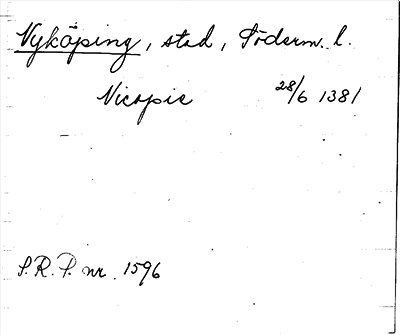 Nyköping, stad, Söderm. l.
Nicopie 28/6 1381
S.R.P. nr 1596